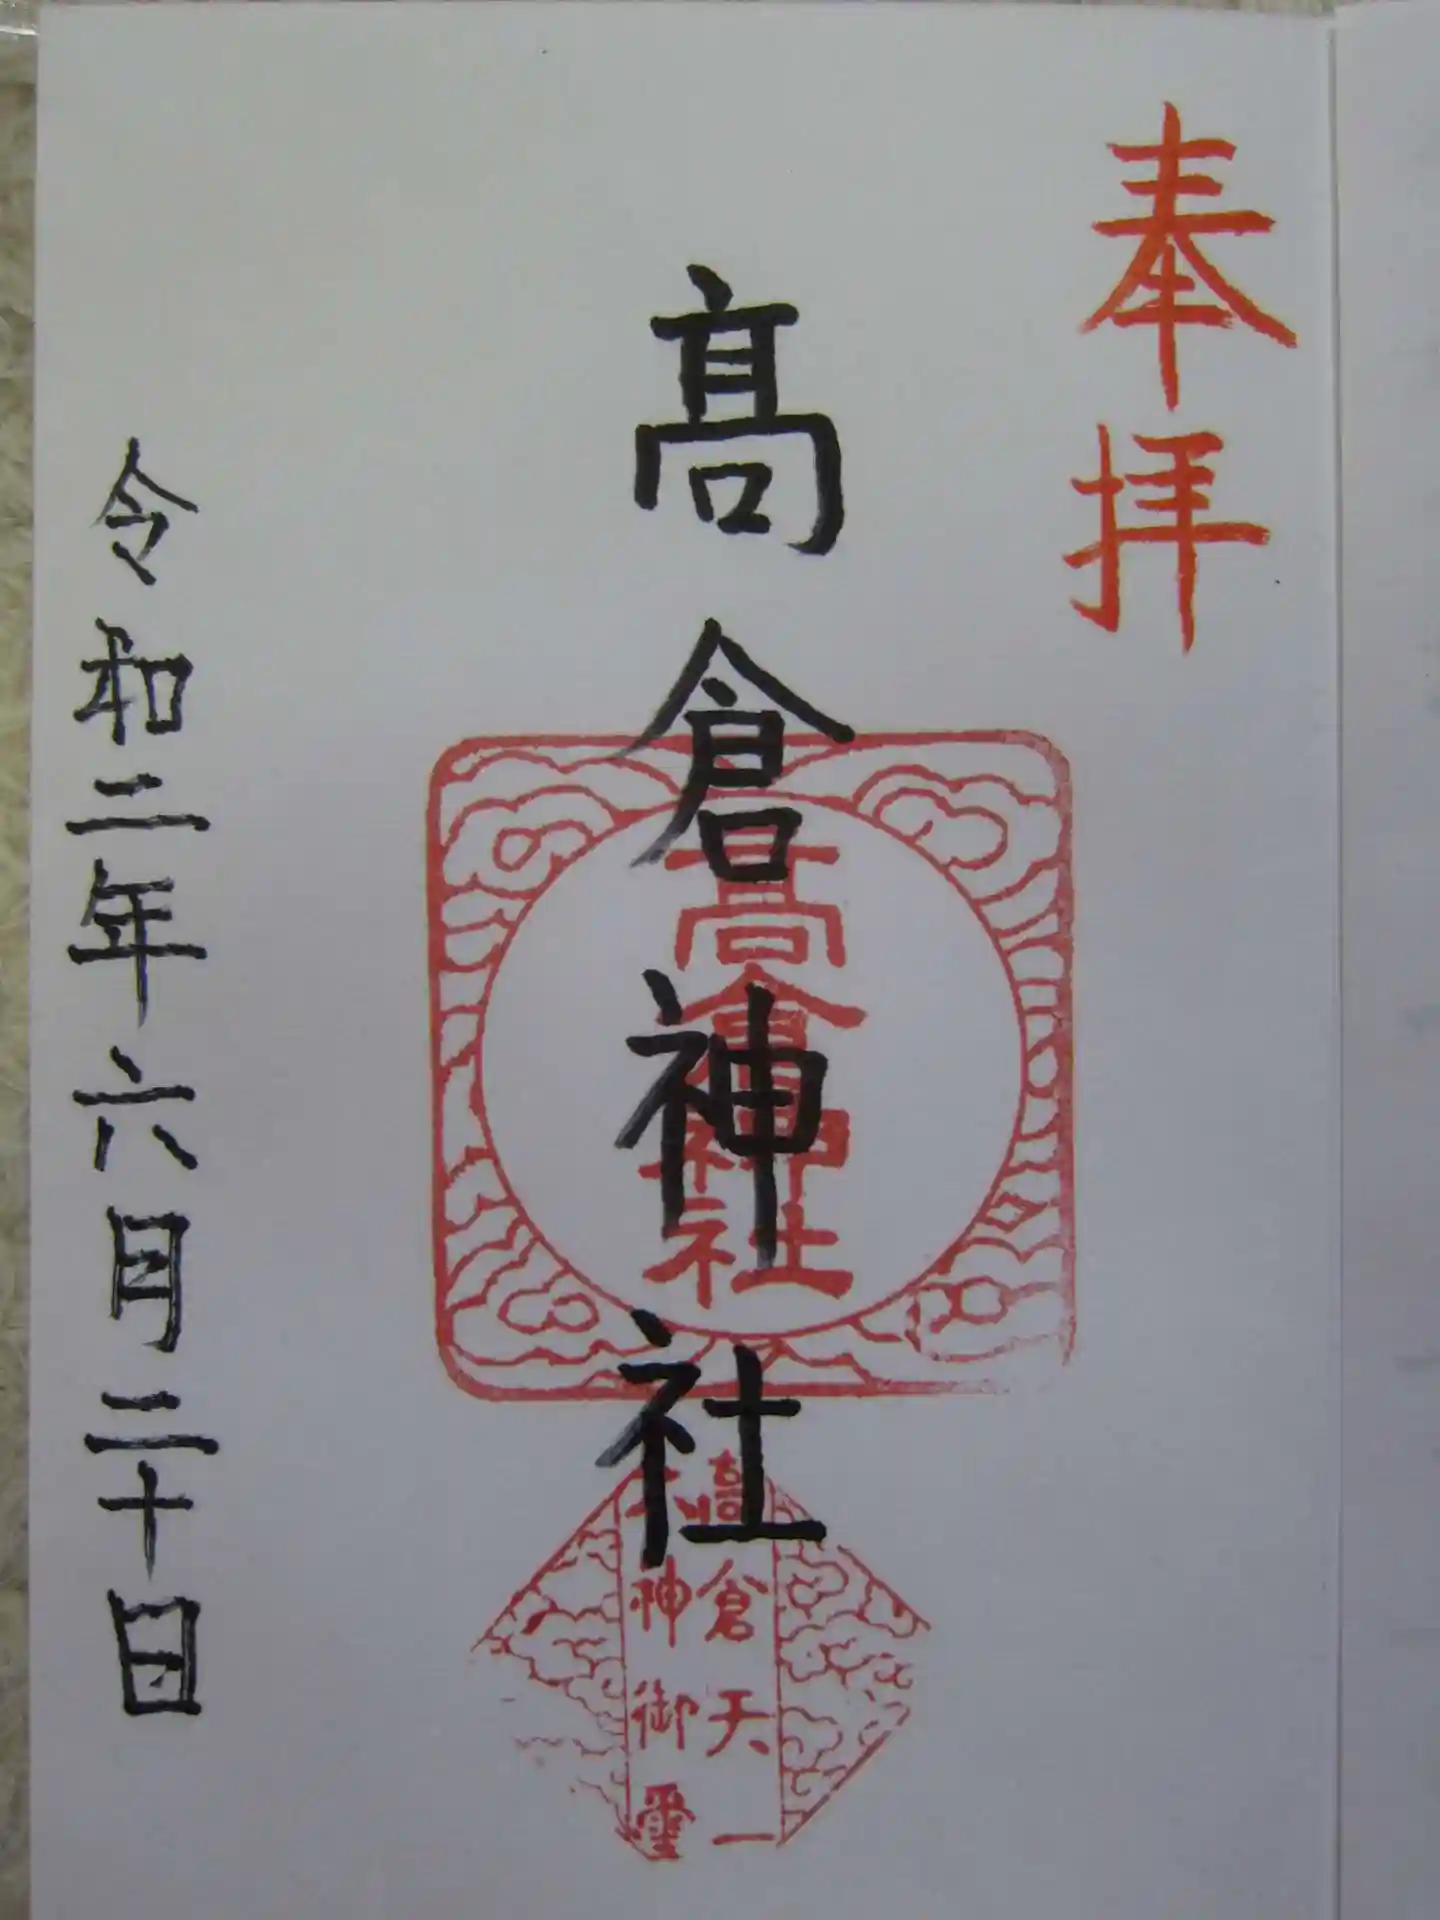 奉拝
髙倉神社
髙倉神社
髙倉天一
大神御璽
令和二年六月二十日